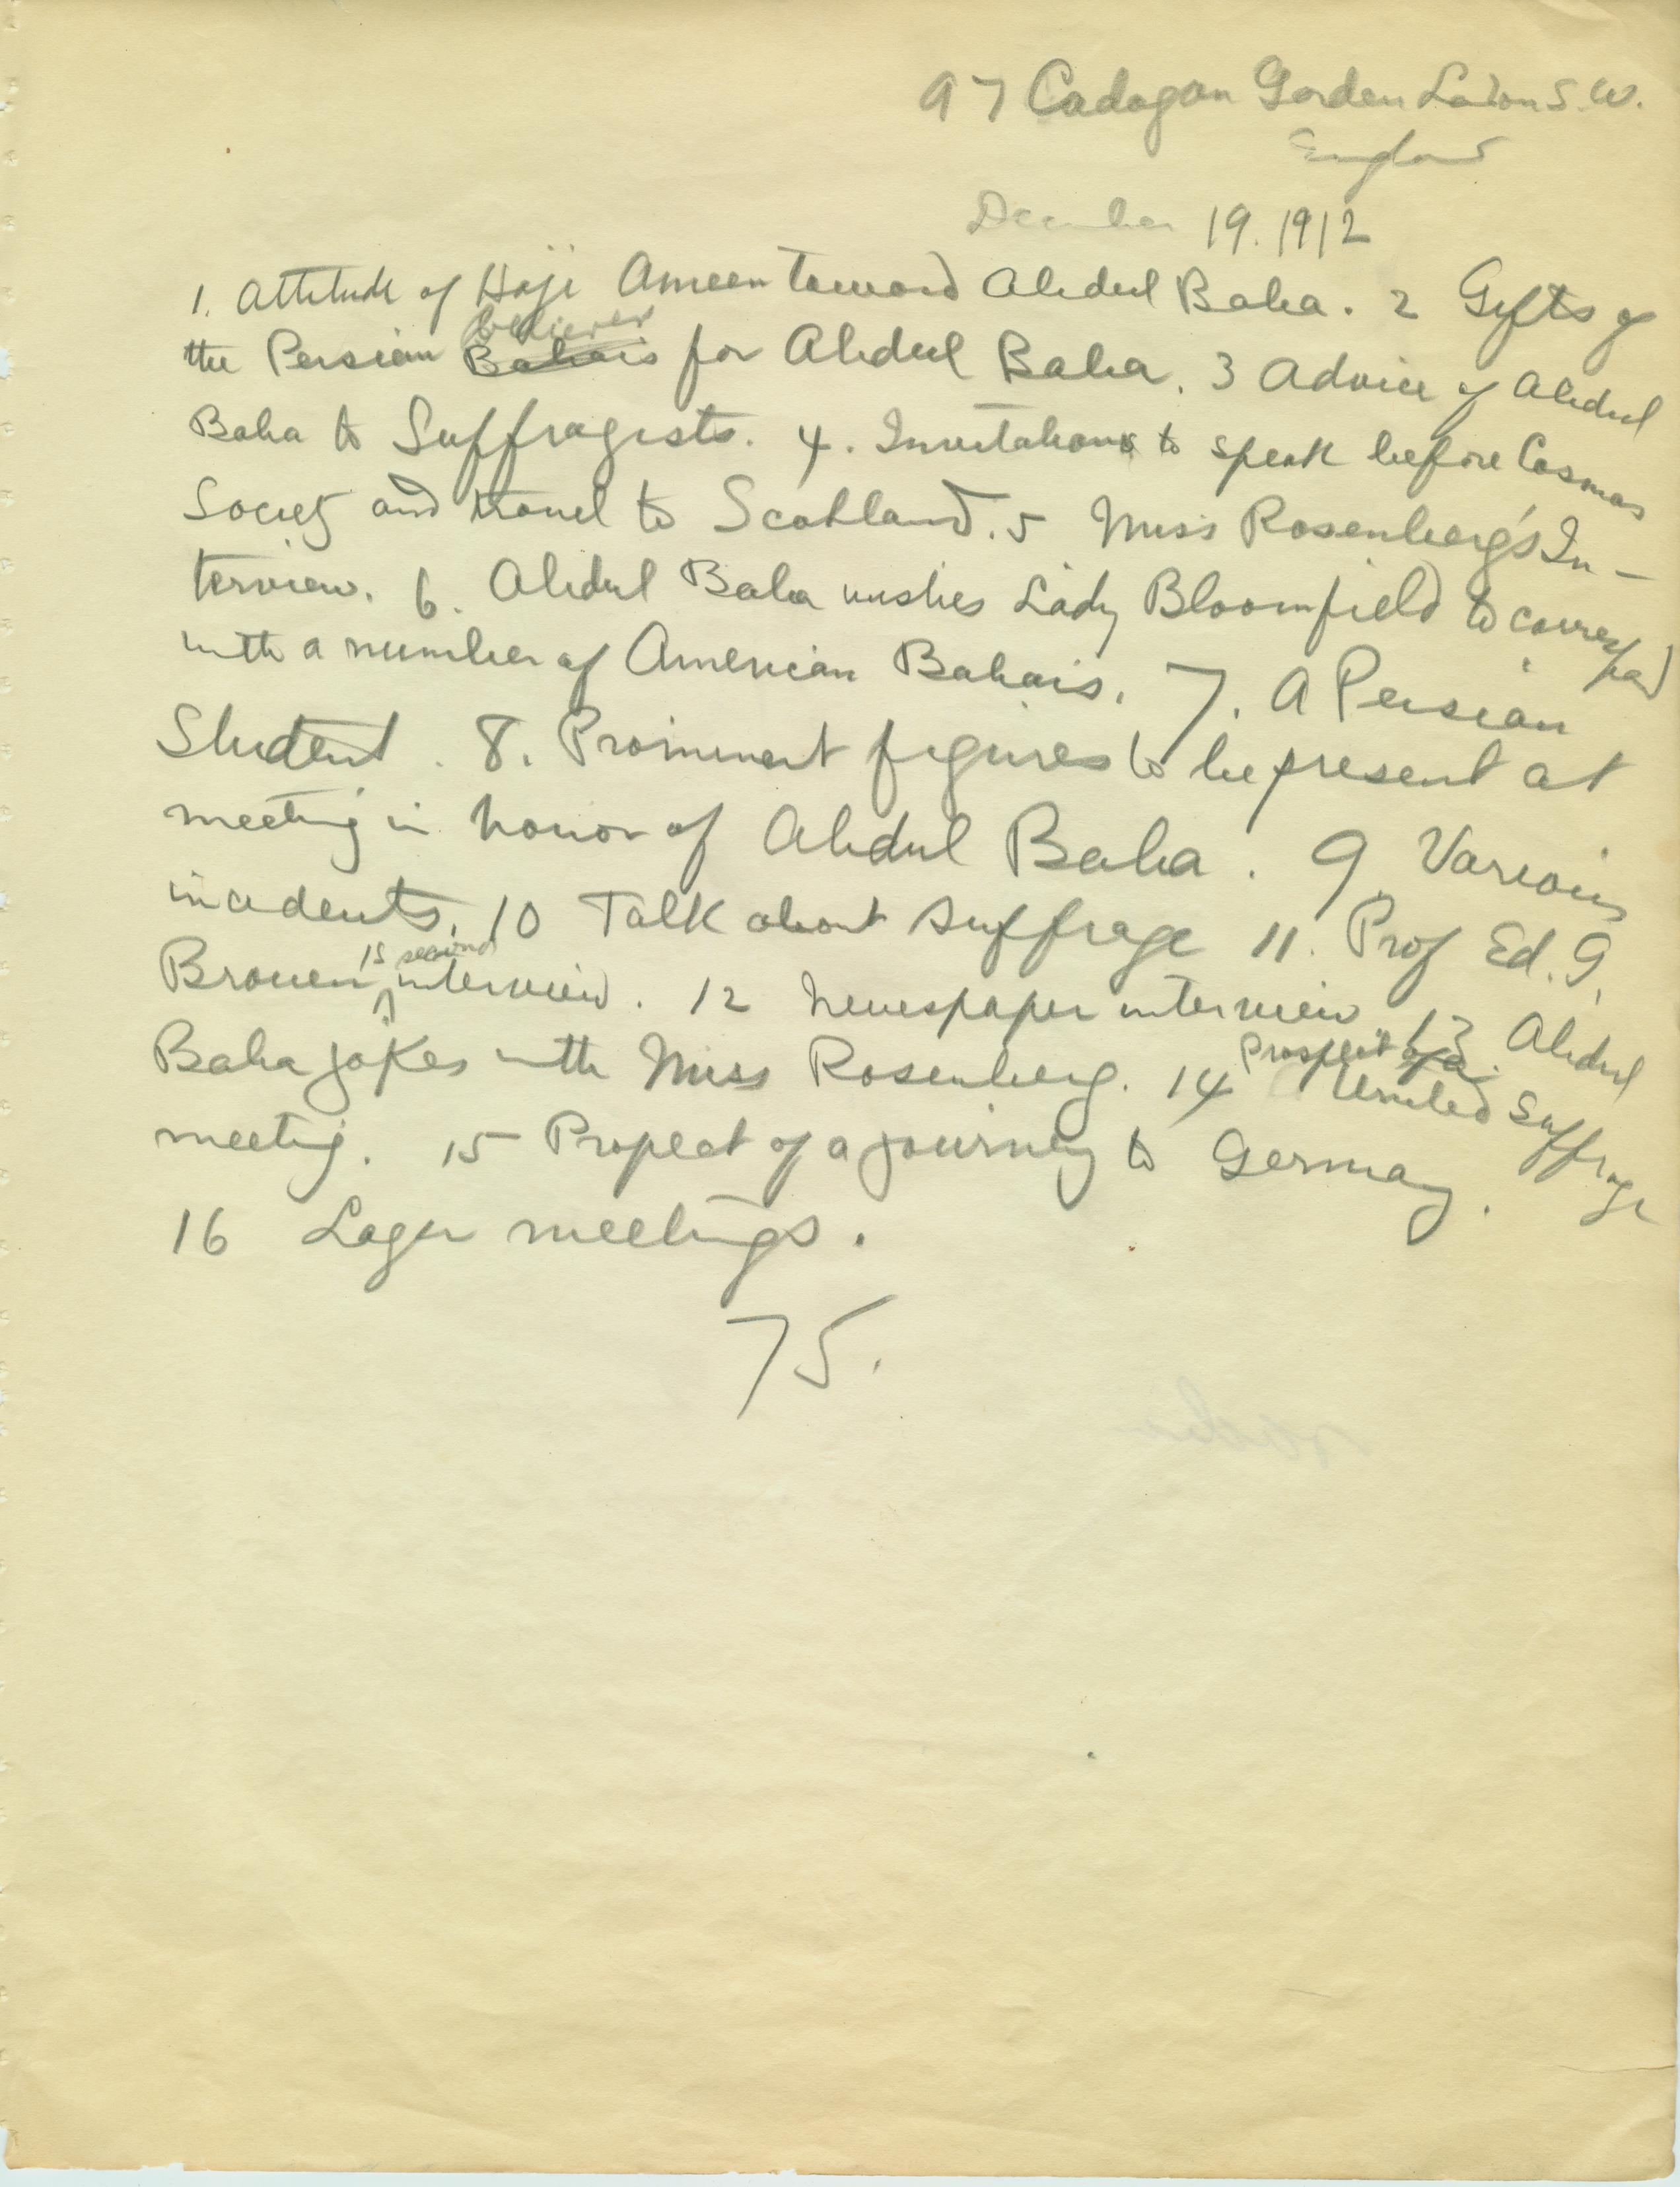 97 Cadogan Garden London S.W.
England
December 19. 1912
1. Attitude of Haji Ameen toward Abdul Baha. 2 Gifts of
believer
the Persian Bahais for Abdul Baha. 3 Advice of Abdul
Baha to Suffragists. 4. Invitations to speak before Cosmos
Society and travel to Scotland. 5 Miss Rosenberg's In-
terview. 6. Abdul Baha wishes Lady Bloomfield to correspond
with a number of American Bahais. 7. A Persian
Student. 8. Prominent figures to be present at
meeting in honor of Abdul Baha. 9. Various
incidents. 10 Talk about suffrage 11. Prof Ed. G.
's second
Brown interview. 12 Newspaper interview 13 Abdul
Prospect of a
Baha jokes with Miss Rosenberg. 14 United Suffrage
meeting. 15 Prospect of a journey to Germany.
16 Lager meetings.
75.